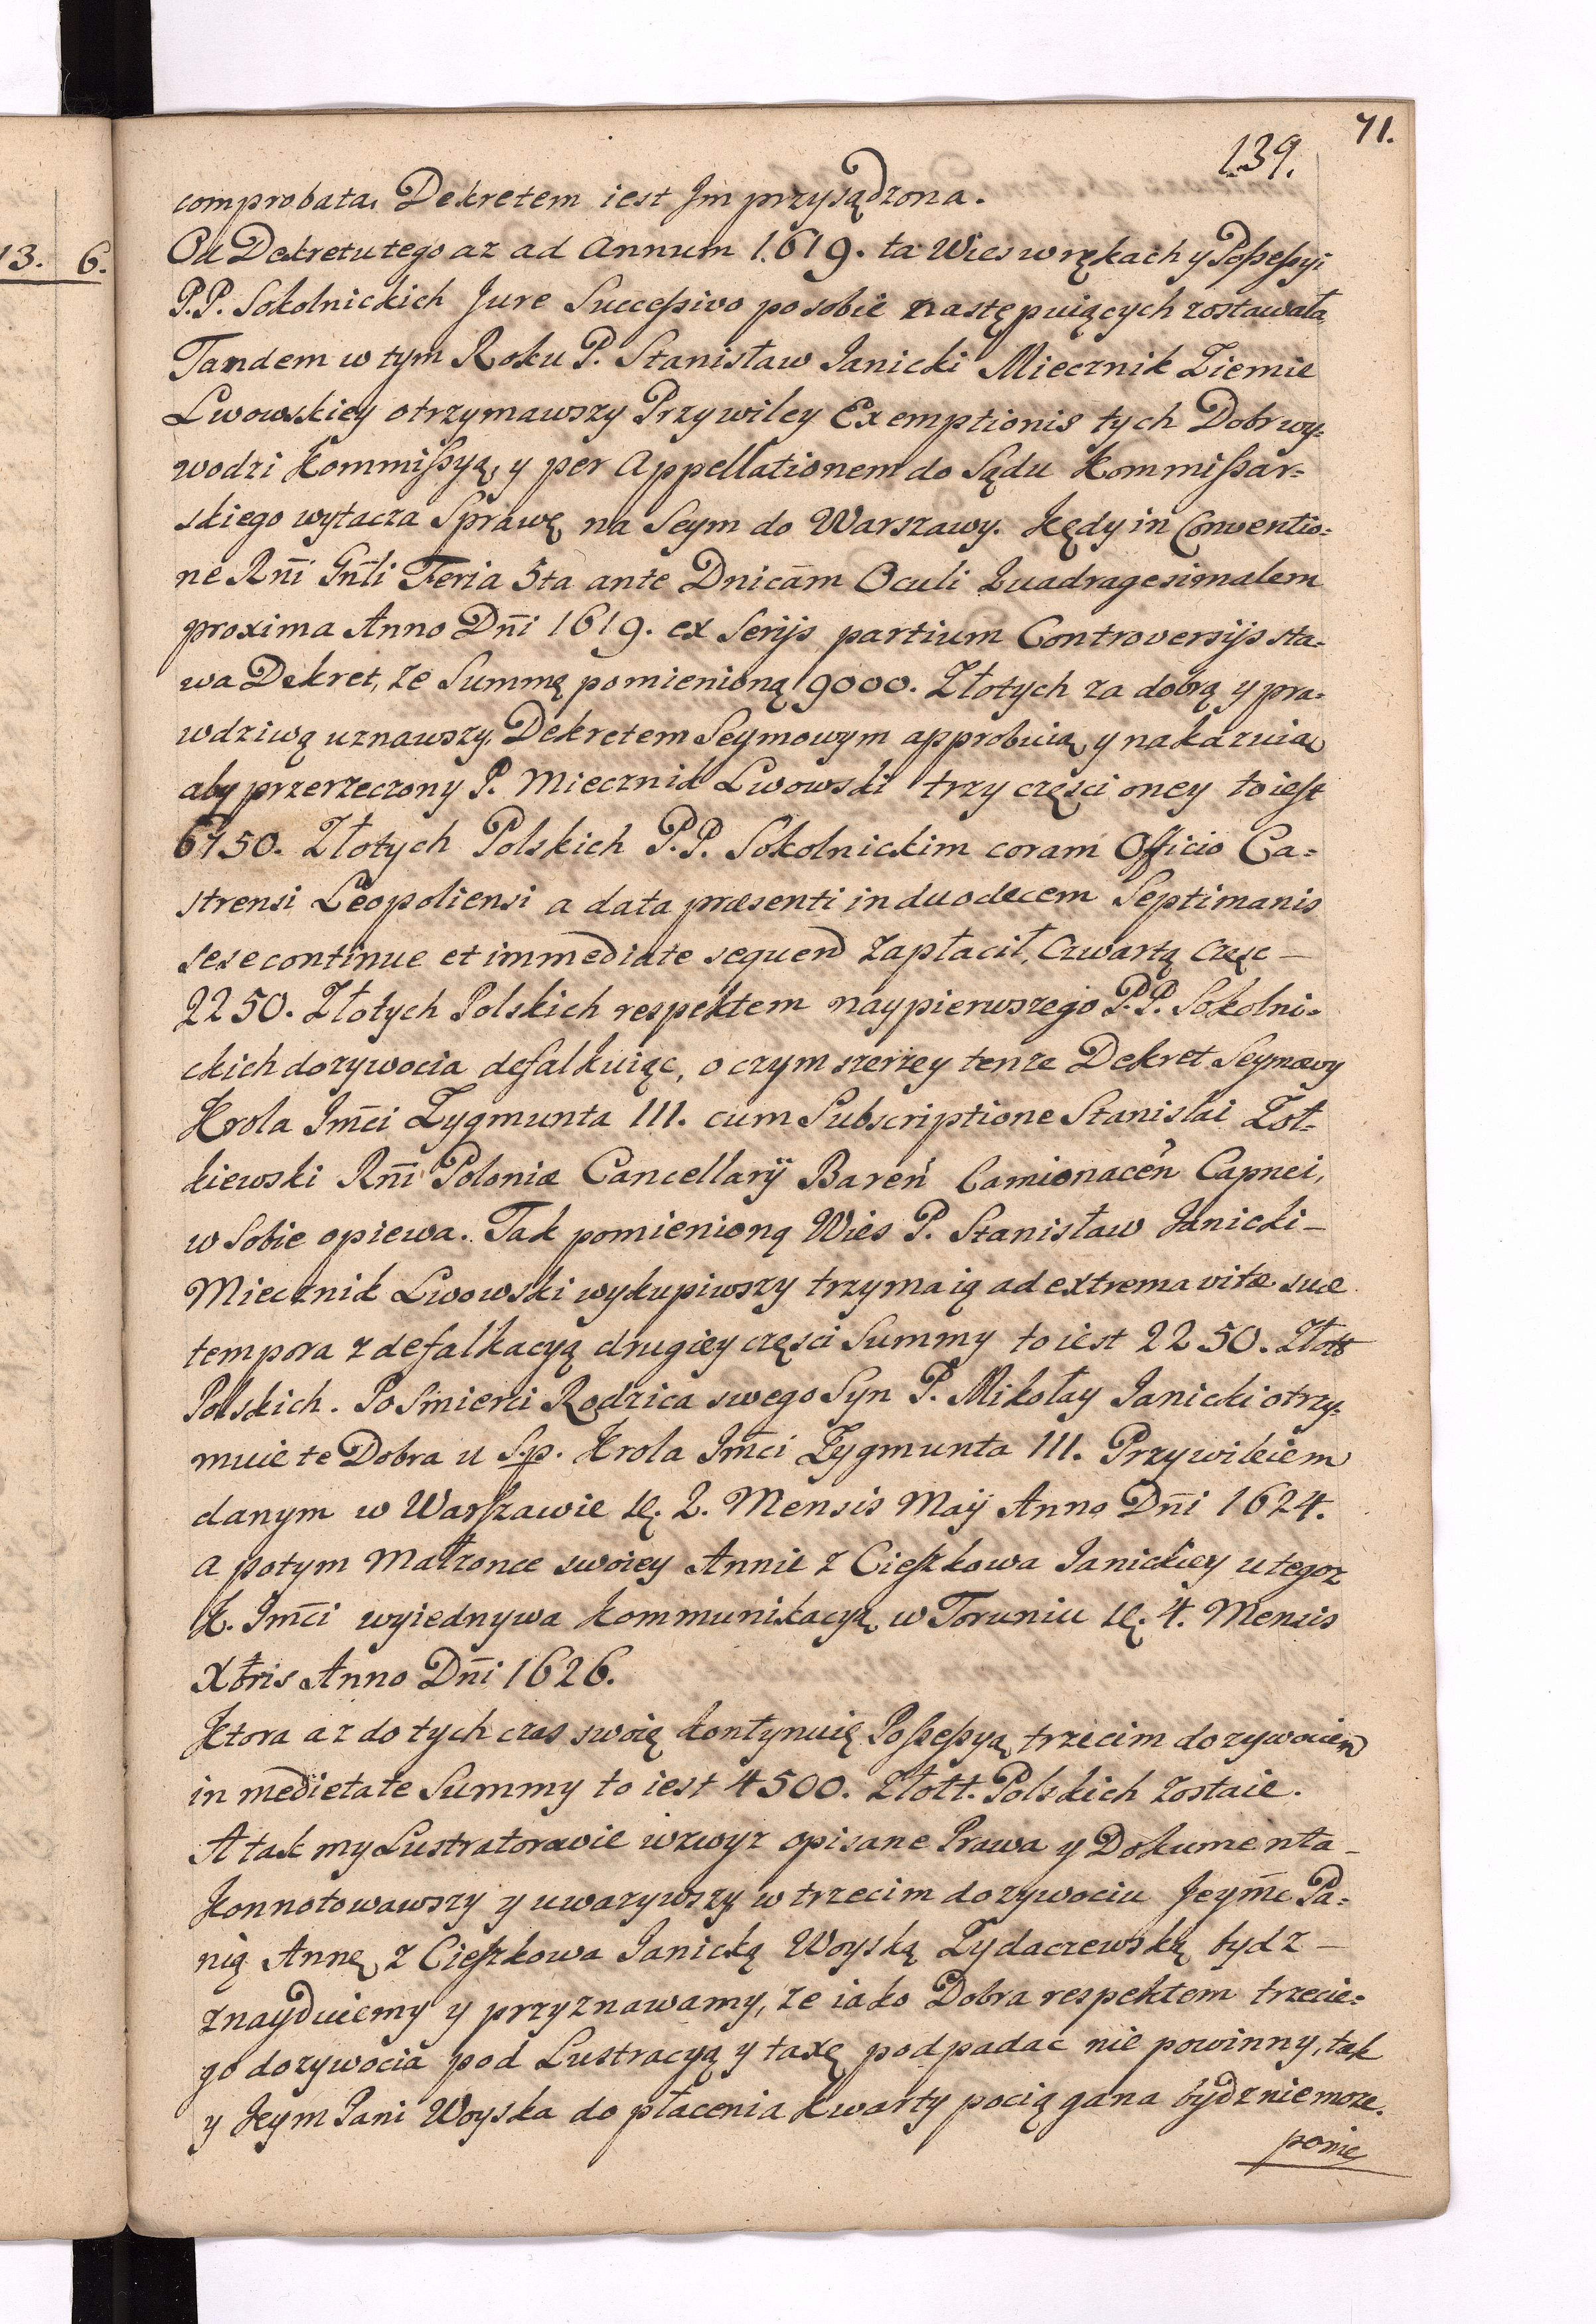 71.
139.
13. 6.
comprobata, Dekretem iest Jm przysądzona.
Od Dekretu tego az ad Annum 1619. ta Wies w rękach y Possessyi
P.P. Sokolnickich Jure Successivo po sobie następuiących zostawała,
Tandem w tym Roku P. Stanisław Janicki Miecznik Ziemie
Lwowskiey otrzymawszy Przywiley Exemptionis tych Dobr wy=
wodzi Kommissyą, y per Appellationem do Sądu Kommissar=
skiego wytacza Sprawę na Seym do Warszawy. Kędy in Conventio=
ne Rñi Gñli Feria 5ta ante Dnicām Oculi Quadragesimalem
proxima Anno Dñi 1619. ex Serijs partium Controversijs sta=
wa Dekret, ze Summę pomienioną 9000. Złotych za dobrą y pra=
wdziwą uznawszy, Dekretem Seymowym approbuią, y nakazuią,
aby przerzeczony P. Miecznik Lwowski trzy częsci oney to iest
6750. Złotych Polskich P.P. Sokolnickim coram Officio Ca=
strensi Leopoliensi a data præsenti in duodecem Septimanis
sese continue et immediate sequen zapłacił, Czwartą Częsc –
2250. Złotych Polskich respektem naypierwszego P.P. Sokolni=
ckich dozywocia defalkuiąc, o czym szerzey tenze Dekret Seymowy
Krola Jm̄ci Zygmunta III. cum Subscriptione Stanislai Zoł=
kiewski Rñi Poloniæ Cancellarÿ Bareń Camionaceń Capnei,
w Sobie opiewa. Tak pomienioną Wies P. Stanisław Janicki –
Miecznik Lwowski wykupiwszy trzyma ią ad extrema vitæ suæ
tempora z defalkacyą drugiey częsci Summy to iest 2250. Złott
Polskich. Po Smierci Rodzica swego Syn P. Mikołay Janicki otrzy=
muie te Dobra u S.p. Krola Jm̄ci Zygmunta III. Przywileiem
danym w Warszawie d. 2. Mensis Maÿ Anno Dñi 1624.
a potym Małzonce swoiey Annie z Cieszkowa Janickiey u tegoz
K. Jm̄ci wyiednywa Kommunikacyą w Toruniu d. 4. Mensis
Xbris Anno Dñi 1626.
Ktora az do tych czas swoię kontynuię Possessyą, trzecim dozywociem
in medietate Summy to iest 4500. Złott. Polskich zostaie.
A tak my Lustratorowie wzwyz opisane Prawa y Dokumenta –
Konnotowawszy y uwazywszy, w trzecim dozywociu Jeym̄c Pa=
nią Annę z Cieszkowa Janicką Woyską Zydaczewską bydz –
znayduiemy y przyznawamy, ze iako Dobra respektem trzecie=
go dozywocia pod Lustracyą y taxę podpadac nie powinny, tak
y Jeym Pani Woyska do płacenia kwarty pociągana bydz nie moze.